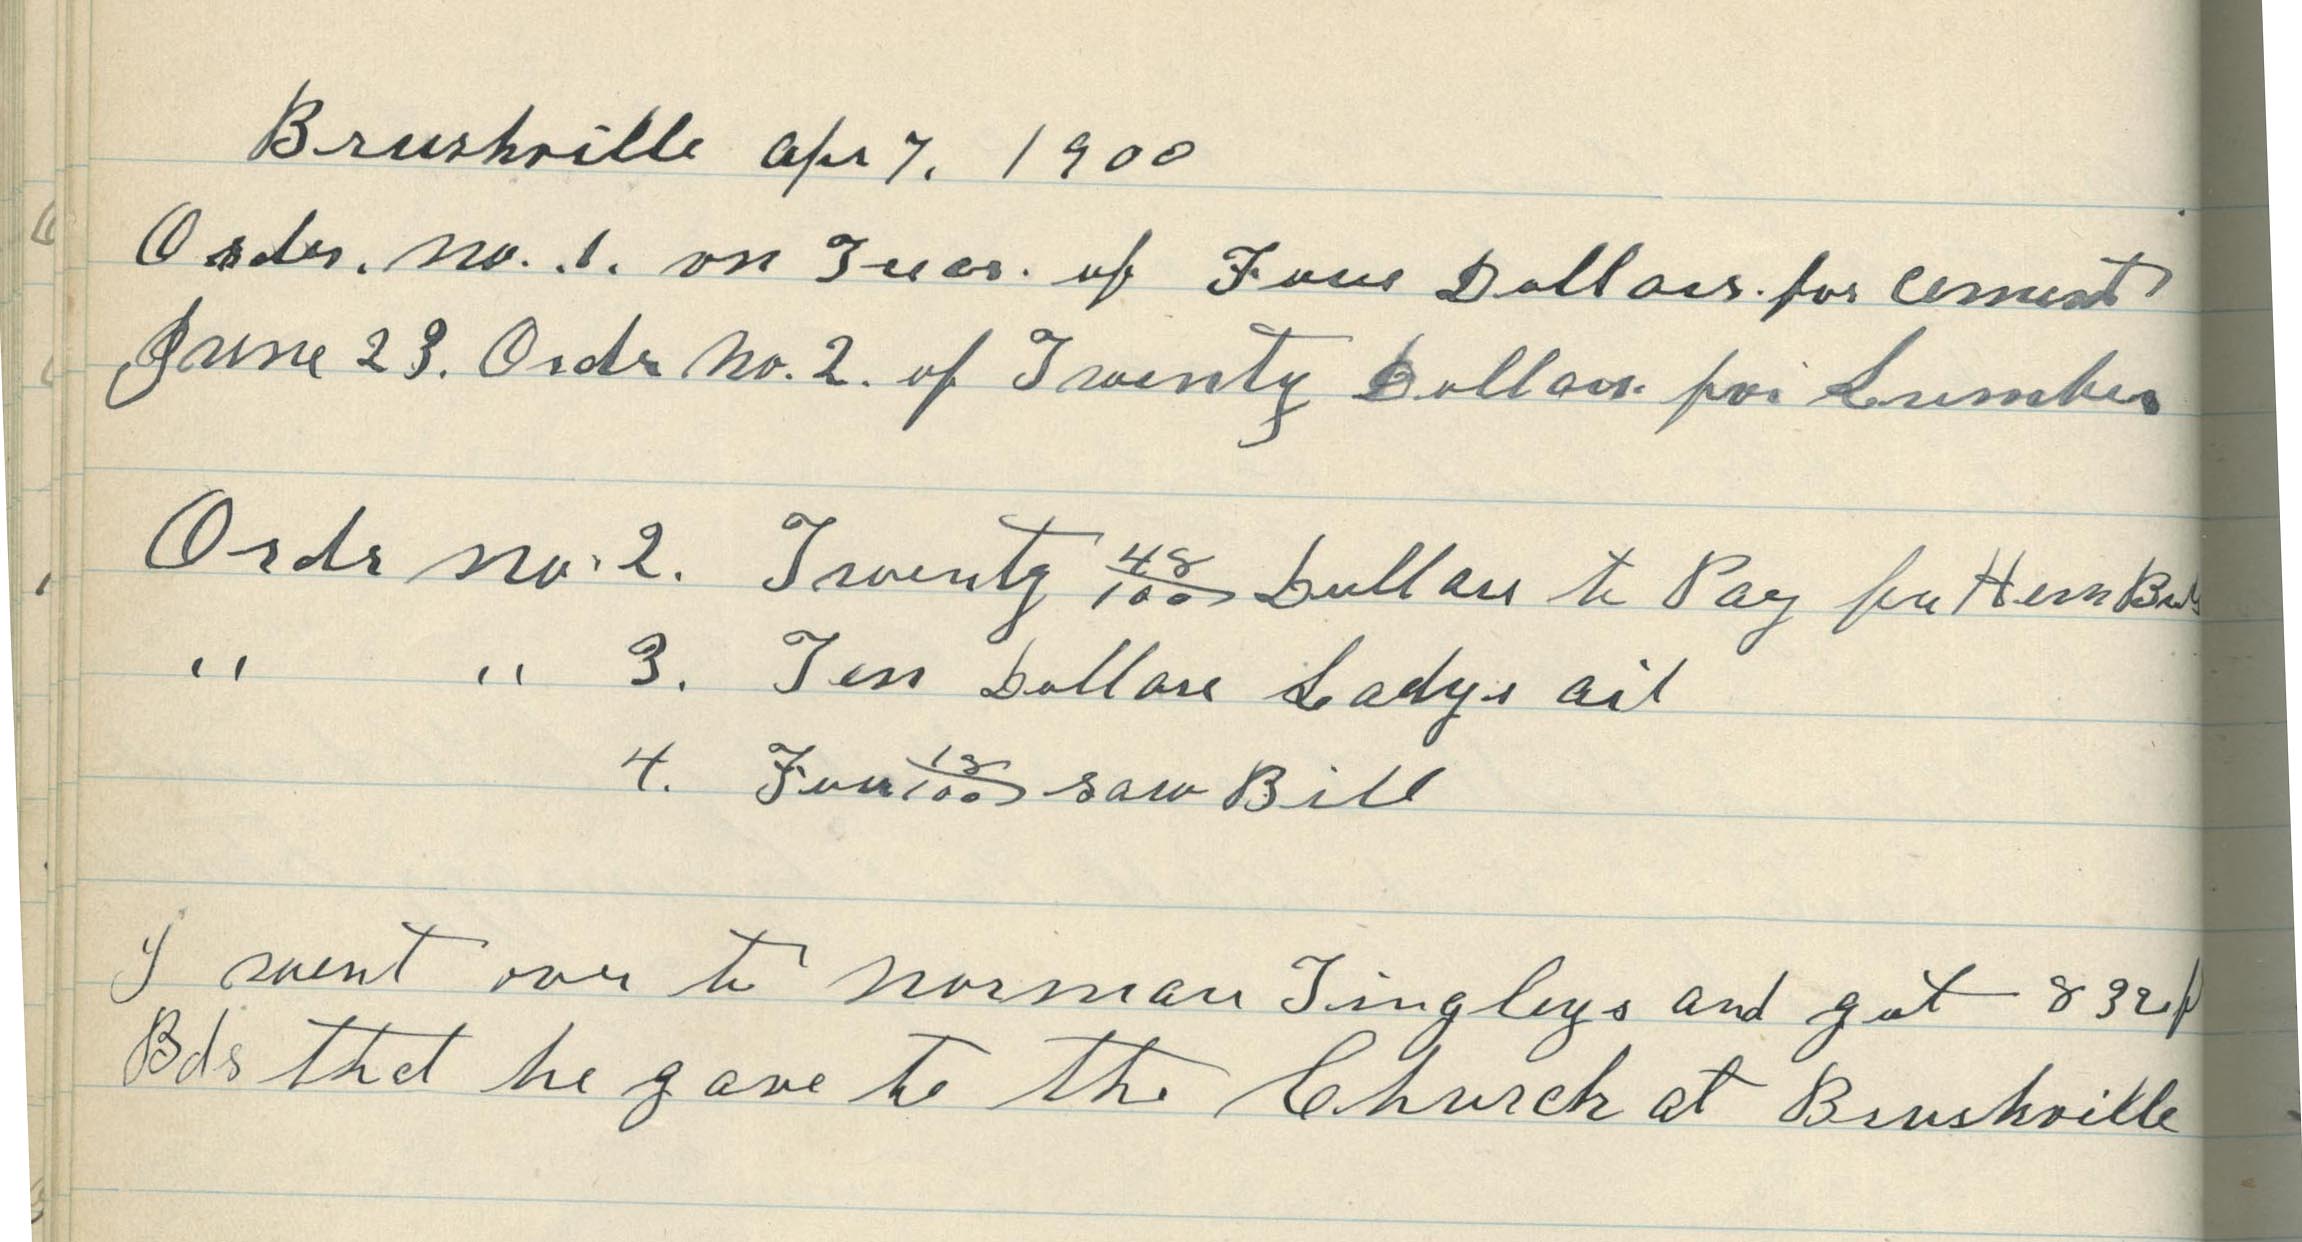 Brushville Apr 7. 1900
Order. No. 1. on Treas. of Four Dollars. for Cement
June 23. Ordr No. 2. of Twenty Dollars for Lumber
Ordr No. 2. Twenty 48/100 Dollars to Pay for
" " 3. Ten Dollars Ladys aid
4. Four 18/100 saw Bill
I went over to Norman Tingleys and got 832 ft
Bds that he gave to the Church at Brushville